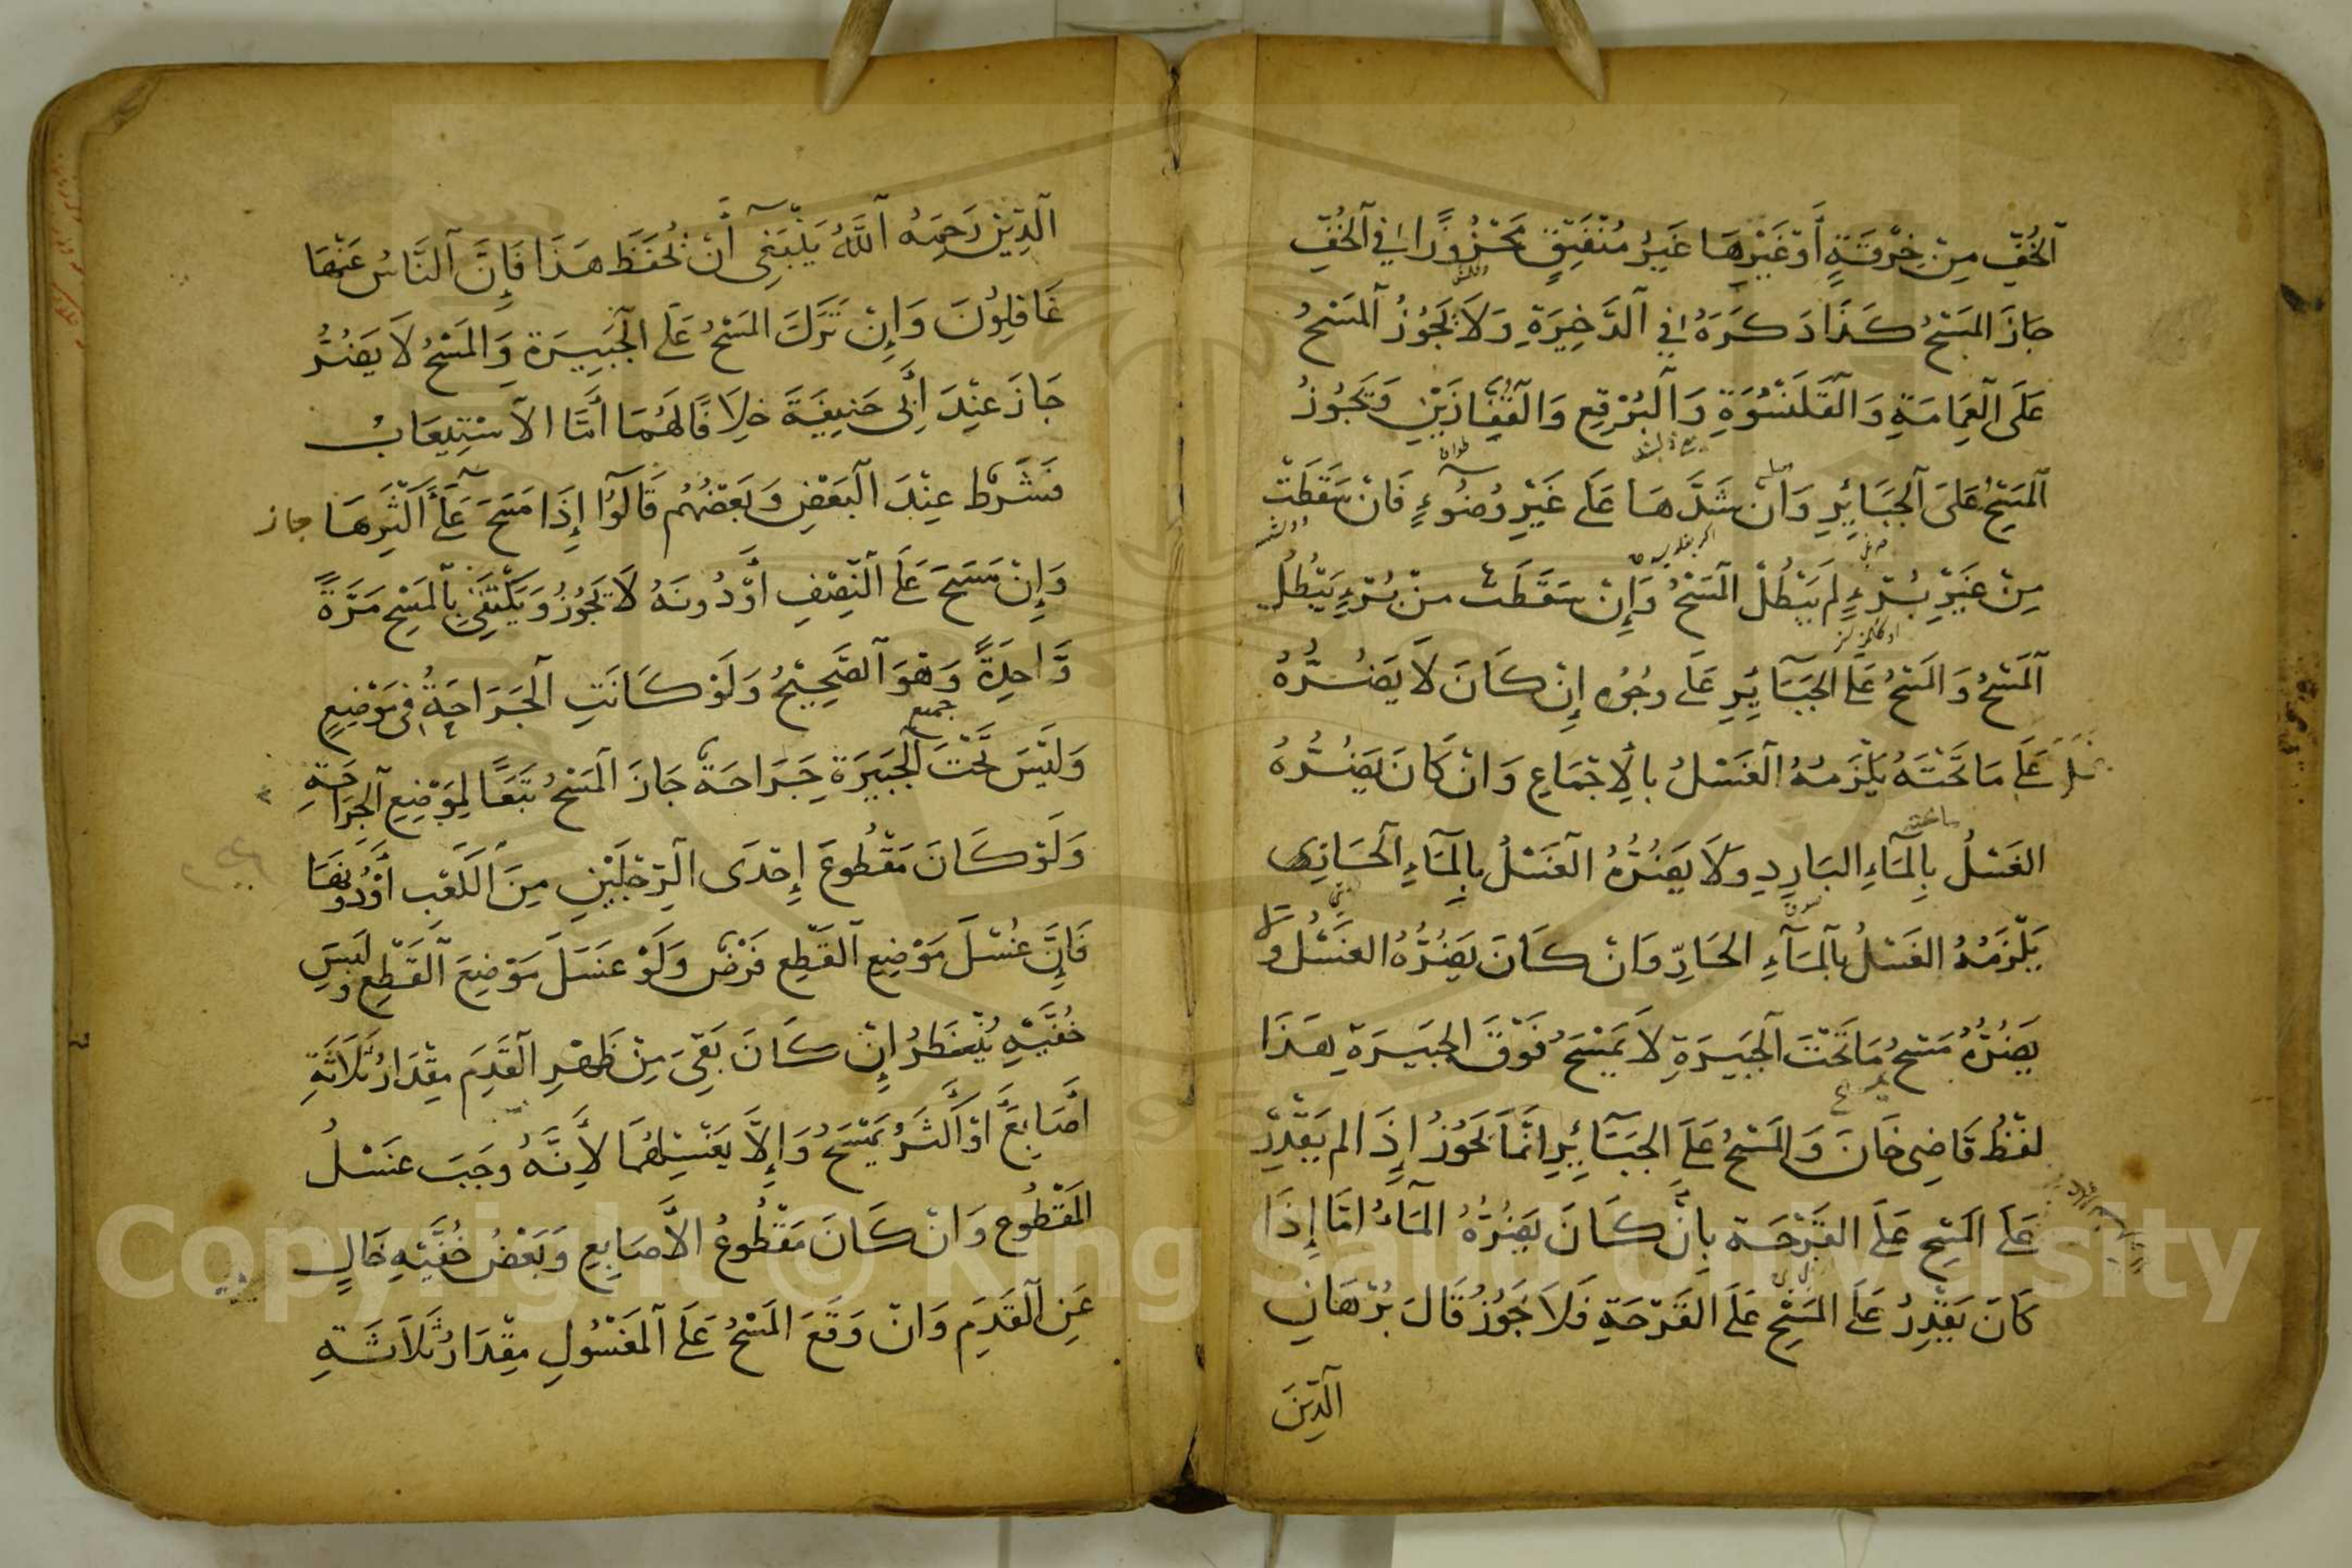 اَلْخُفِّ مِنْ خِرْقَةٍ أَوْ غَيْرِهَا غَيْرُ مُنْفَتِقٍ مَخْرُوزًا فِي اَلْخُفِّ
جَازَ المَسْحُ كَذَا ذَكَرَهُ فِي الذَّخِيرَةِ وَلَا يَجُوزُ اَلْمَسْحُ
عَلَى الْعِمَامَةِ وَالْقَلَنْسُوَةِ وَالْبُرْقِعِ وَالْقُفَّازَيْنِ وَيَجُوزُ
اَلْمَسْحُ عَلَى الْجَبَائِرِ وَانْ شَدَّهَا عَلَى غَيْرِ وُضُوءٍ فَانْ سَقَطَتْ
مِنْ غَيْرِ بُرْءٍ لَمْ يَبْطُلْ المَسْحُ وَإِنْ سَقَطَتْ مِنْ بُرْءٍ يَبْطُلُ
اَلْمَسْحُ وَالْمَسْحُ عَلَى الجَبَائِرِ عَلَى وجُوه إِنْ كَانَ لَا يَضُرُّهُ
غسل عَلَى مَا تَحْتَهُ يَلْزَمُهُ الْغَسْلُ بِالْاِجْمَاعِ وَانْ كَانَ يَضُرُّهُ
الغَسْلُ بِالْمَاءِ البَارِدِ وَلَا يَضُرُّهُ الْغَسْلُ بِالْمَاءِ اَلْحَارِّ
يَلْزَمُهُ الغَسْلُ بِالْمَاءِ الحَارِّ وَانْ كَانَ يَضُرُّهُ الغَسْلُ وَ
يَضُرُّهُ مَسْحُ مَا تَحْتَ اَلْجَبِيرَةِ لَا يَمْسَحُ فَوْقَ الجَبِيرَةِ هَذَا
لَفْظُ قَاضِى خَانَ وَالْمَسْحُ عَلَى الجَبَائِرِ اِنَّمَا يَجُوزُ اِذَا لم يَقْدِرْ
عَلَى الْمَسْحِ عَلَى القَرْحَةِ بِاَنْ كَانَ يَضُرُّهُ المَاءُ اَمَّا إِذَا
كَانَ يَقْدِرُ عَلَى المَسْحِ عَلَى القَرْحَةِ فَلَا يَجُوزُ قَالَ بُرْهَانُ
اَلدِّينِ
اَلدِّيْنِ رَحِمَهُ اَللّٰهُ يَنْبَغِى أَنْ يُحْفَظَ هَذَا فَإِنَّ اَلنَّاسَ عَنْهَا
غَافِلُونَ وَإِنْ تَرَكَ المَسْحُ عَلَى الْجَبِيرَةِ وَالمَسْحُ لَا يَضُرُّ
جَازَ عِنْدَ أَبِى حَنِيفَةَ خِلَافًا لَهُمَا أَمَّا الْاَسْتِيعَابُ
فَشَرْطٌ عِنْدَ الْبَعْضِ وَبَعْضُهُمْ قَالُوا إِذَا مَسَحَ عَلَى أَكْثَرِهَا جاز
وَإِنْ مَسَحَ عَلَى النِّصْفِ أَوْ دُونَهُ لَا يَجُوزُ وَيَكْتَفِى بِالْمَسْحِ مَرَّةً
وَّاحِدَةً وَهُوَ اَلصَّحِيحُ وَلَوْ كَانَتِ اَلْجَرَاحَةُ فِى مَوْضِعٍ
جميع
وَلَيْسَ تَحْتَ الْجَبِيرَةِ جَرَاحَةٌ جَازَ اَلْمَسْحُ تَبَعًا لِمَوْضِعِ اَلْجَرَاحَةِ
وَلَوْ كَانَ مَقْطُوعَ إِحْدَى الرِّجْلَيْنِ مِنَ الْكَعْبِ أَوْ دُونِهَا
فَإِنَّ غُسْلَ مَوْضِعِ اَلْقَطْعِ فَرْضٌ وَلَوْ غَسَلَ مَوْضِعَ اَلْقَطْعِ وَلَبِسَ
خُفَّيْهِ يُنْظَرُ إِنْ كَانَ بَقِىَ مِنْ ظَهْرِ الْقَدَمِ مِقْدَارُ ثَلَاثَةِ
أَصَابِعَ أَوْ أَكْثَرُ يَمْسَحُ وَإِلَّا يَغْسِلْهُمَا لِأَنَّهُ وَجَبَ غَسْلُ
المَقْطُوعِ وَانْ كَانَ مَقْطُوعُ الأَصَابِعِ وَبَعْضُ خُفَّيْهِ خَالٍ
عَنِ اَلْقَدَمِ وَانْ وَقَعَ المَسْحُ عَلَى اَلْمَغْسُولِ مِقْدَارُ ثَلَاثَةِ
Copyright © King Saud University